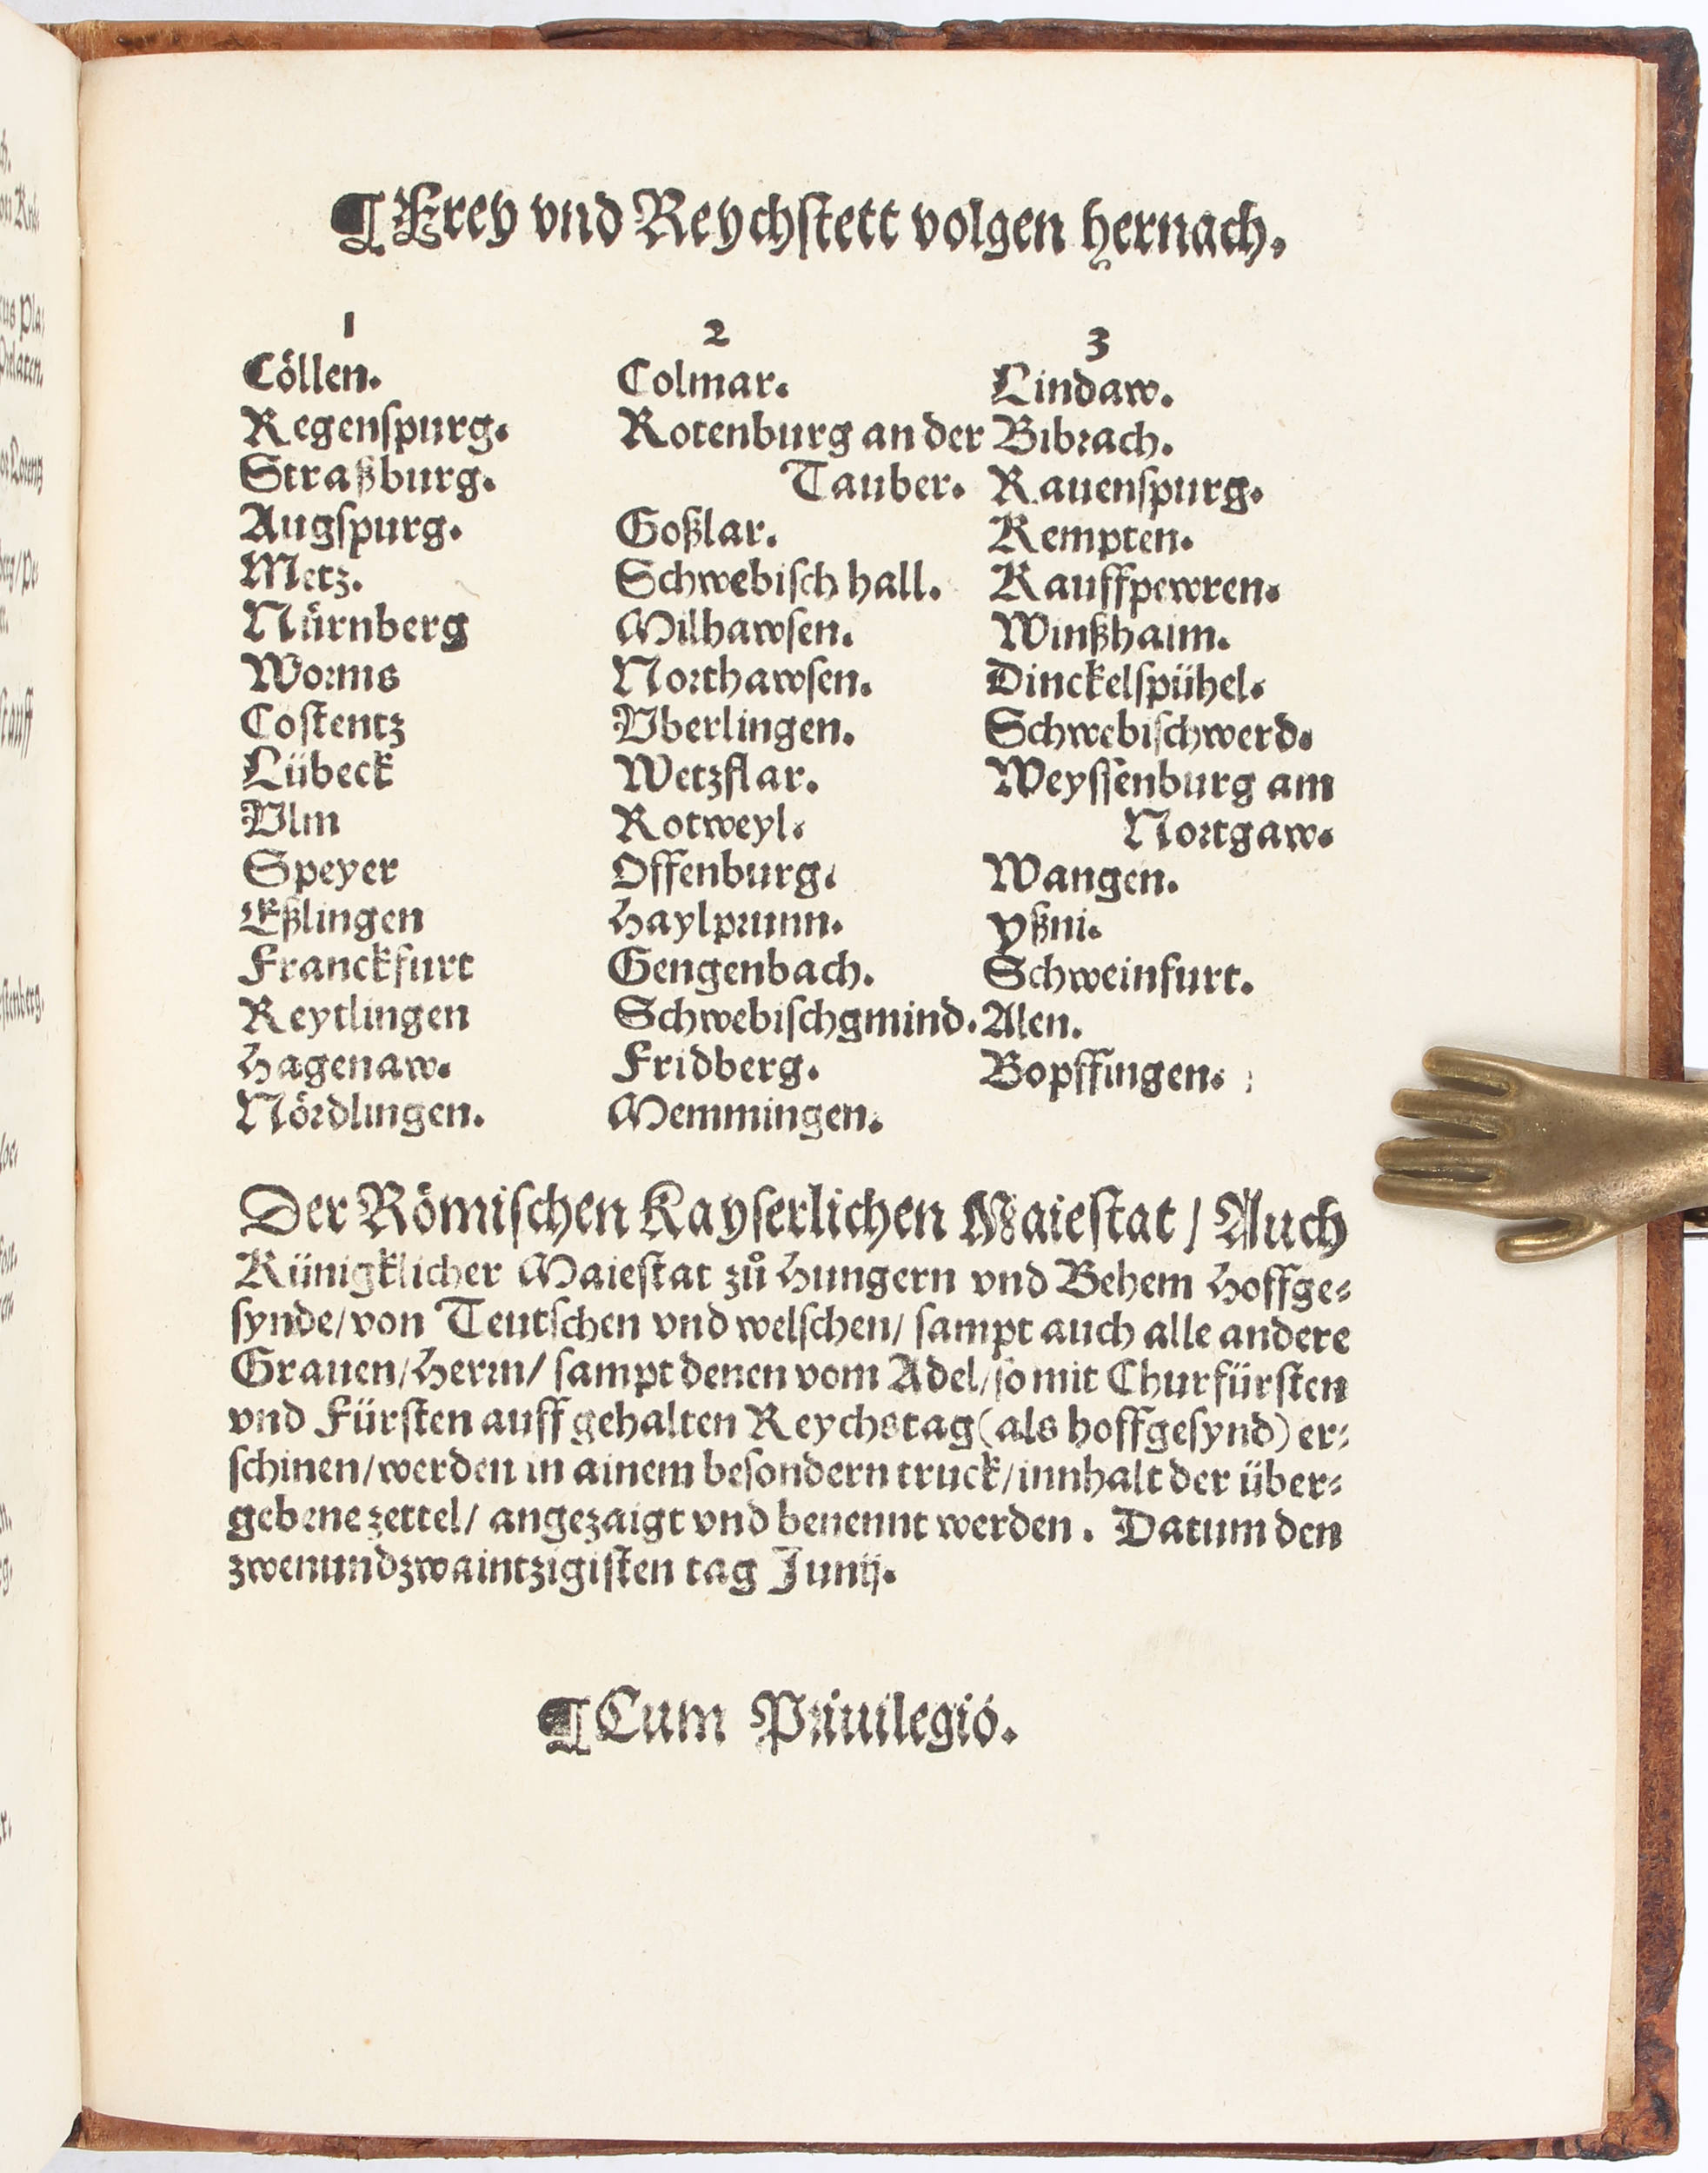 ¶ Frey vnd Reychſtett volgen hernach.
1
Cöllen.
Regenſpurg.
Straßburg.
Augſpurg.
Metz.
Nürnberg
Worms
Coſtentz
Lübeck
Vlm
Speyer
Eßlingen
Franckfurt
Reytlingen
Hagenaw.
Nördlingen.
2
Colmar.
Rotenburg an der
Tauber.
Goßlar.
Schwebiſch hall.
Milhawſen.
Northawſen.
Vberlingen.
Wetzflar.
Rotweyl.
Offenburg.
Haylprunn.
Gengenbach.
Schwebiſchgmind.
Fridberg.
Memmingen.
3
Lindaw.
Bibrach.
Rauenſpurg.
Kempten.
Kauffpewren.
Winßhaim.
Dinckelſpühel.
Schwebiſchwerd.
Weyſſenburg am
Nortgaw.
Wangen.
Yßni.
Schweinfurt.
Alen.
Bopffingen.
Der Römiſchen Kayſerlichen Maieſtat / Auch
Künigklicher Maieſtat zů Hungern vnd Behem Hoffge⸗
ſynde/von Teutſchen vnd welſchen/ ſampt auch alle andere
Grauen/Herrn/ ſampt denen vom Adel/ſo mit Churfürſten
vnd Fürſten auff gehalten Reychstag(als hoffgeſynd) er⸗
ſchinen/werden in ainem beſondern truck/innhalt der über⸗
gebene zettel/ angezaigt vnd benennt werden. Datum den
zwenundzwaintzigiſten tag Junij.
¶ Cum Priuilegio.